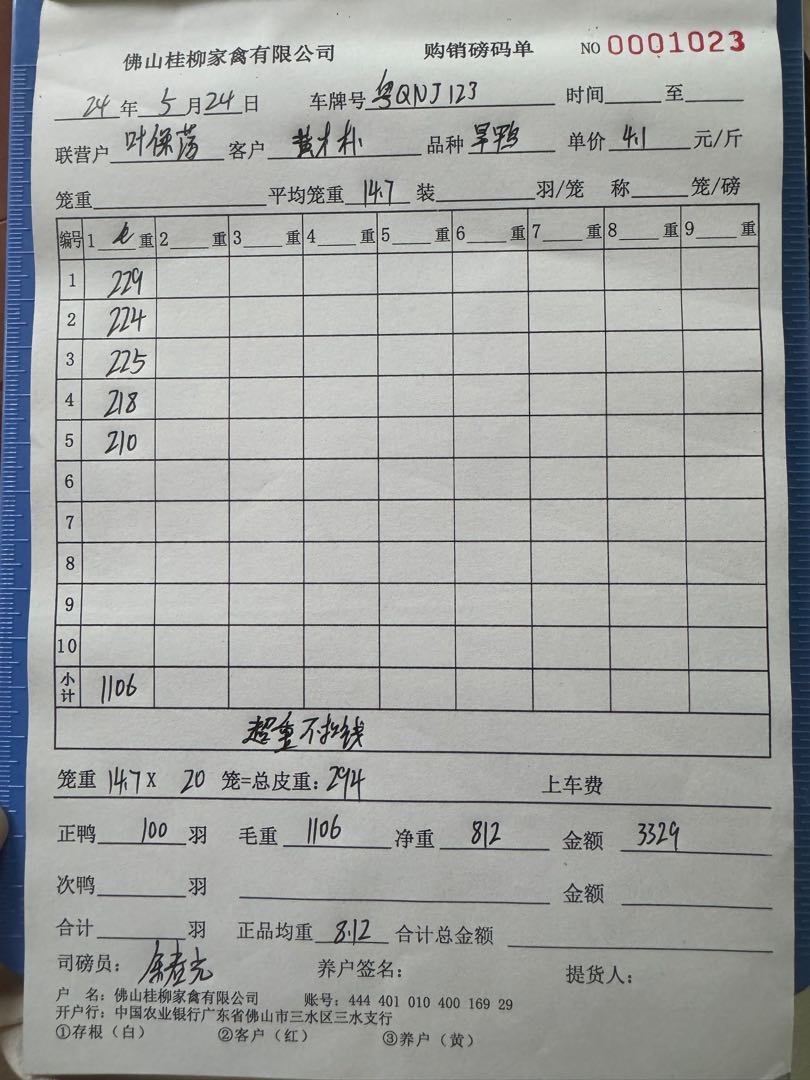 佛山桂柳家禽有限公司 购销磅码单 NO 0001023
24年5月24日 车牌号粤QNJ123 时间 至
联营户叶保荡 客户 黄才朴 品种旱鸭 单价4.1元/斤
笼重 平均笼重14.7装 羽/笼 称 笼/磅
编号 1 重 2 重 3 重 4 重 5 重 6 重 7 重 8 重 9 重
1 229
2 224
3 225
4 218
5 210
6
7
8
9
10
小计 1106
超重不扣钱
笼重14.7X 20笼=总皮重：294 上车费
正鸭100羽 毛重1106 净重812 金额3329
次鸭 羽 金额
合计 羽 正品均重8.12 合计总金额
司磅员： 养户签名： 提货人：
户 名：佛山桂柳家禽有限公司 账号：444 401 010 400 169 29
开户行：中国农业银行广东省佛山市三水区三水支行
①存根（白） ②客户（红） ③养户（黄）